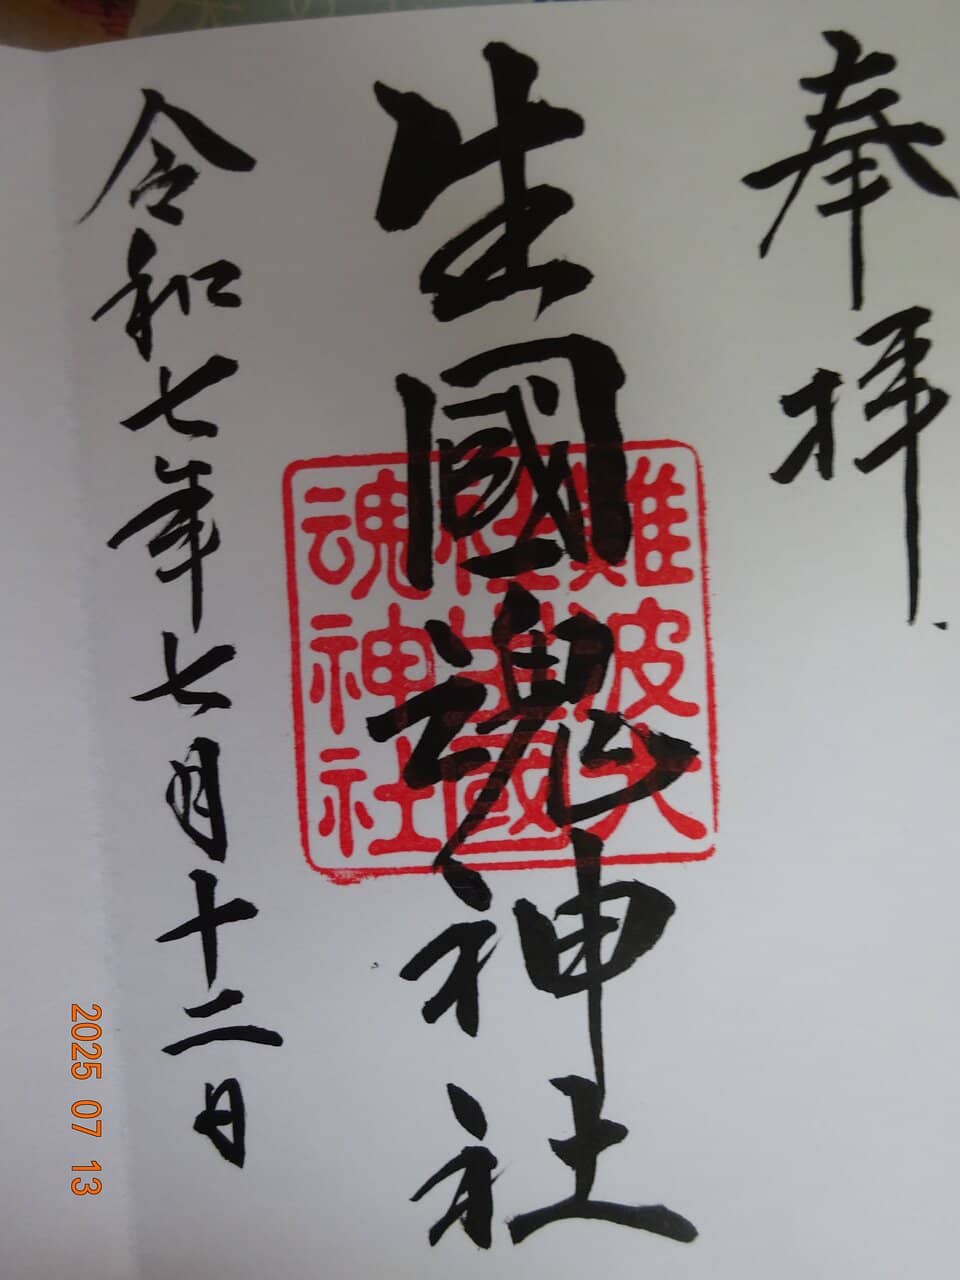 奉拝
生國魂神社
難波大
社生國
魂神社
令和七年七月十二日
2025 07 13